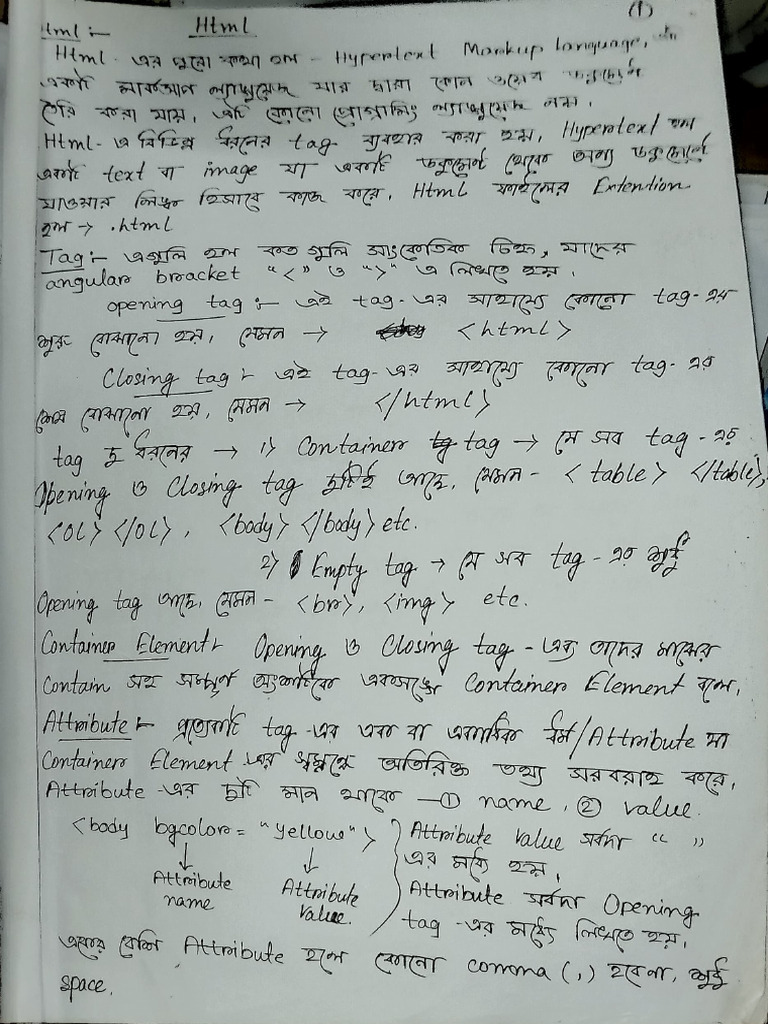 (1)
Html
Html :-
Html - এর পুরো কথা হল - Hypertext Markup Language,
একটি মার্কআপ ল্যাঙ্গুয়েজ যার দ্বারা কোন ওয়েব
তৈরি করা যায়, এটি কোনো প্রোগ্রামিং ল্যাঙ্গুয়েজ নয়,
Html - এ বিভিন্ন ধরনের tag ব্যবহার করা হয়, Hypertext হল
একটি text বা image যা একটি ডকুমেন্ট থেকে অন্য ডকুমেন্টে
যাওয়ার লিঙ্ক হিসাবে কাজ করে, Html ফাইলের Extention
হল → .html
Tag :- এগুলি হল কত গুলি সাংকেতিক চিহ্ন, যাদের
angular bracket "<" ও ">" এ লিখতে হয়,
opening tag :- এই tag - এর সাহায্যে কোনো tag - এর
শুরু বোঝানো হয়, যেমন → <html>
Closing tag :- এই tag - এর সাহায্যে কোনো tag - এর
শেষ বোঝানো হয়, যেমন → </html>
tag দু ধরনের → 1) Container tag → যে সব tag - এর
Opening ও Closing tag দুটিই আছে, যেমন - <table> </table>,
<OL> </OL>, <body> </body> etc.
2) Empty tag → যে সব tag - এর শুধু
Opening tag আছে, যেমন - <br>, <img> etc.
Container Element :- Opening ও Closing tag - এবং তাদের মাঝের
Contain সহ সম্পূর্ণ অংশটিকে একসঙ্গে Container Element বলে,
Attribute :- প্রত্যেকটি tag - এর এক বা একাধিক ধর্ম/Attribute যা
Container Element - এর সম্বন্ধে অতিরিক্ত তথ্য সরবরাহ করে,
Attribute - এর দুটি মান থাকে — ① name, ② value.
<body bgcolor = "yellow">
Attribute name
Attribute Value.
Attribute Value সর্বদা " "
এর মধ্যে হয়,
Attribute সর্বদা Opening
tag - এর মধ্যে লিখতে হয়,
একের বেশি Attribute হলে কোনো comma (,) হবেনা, শুধু
space.